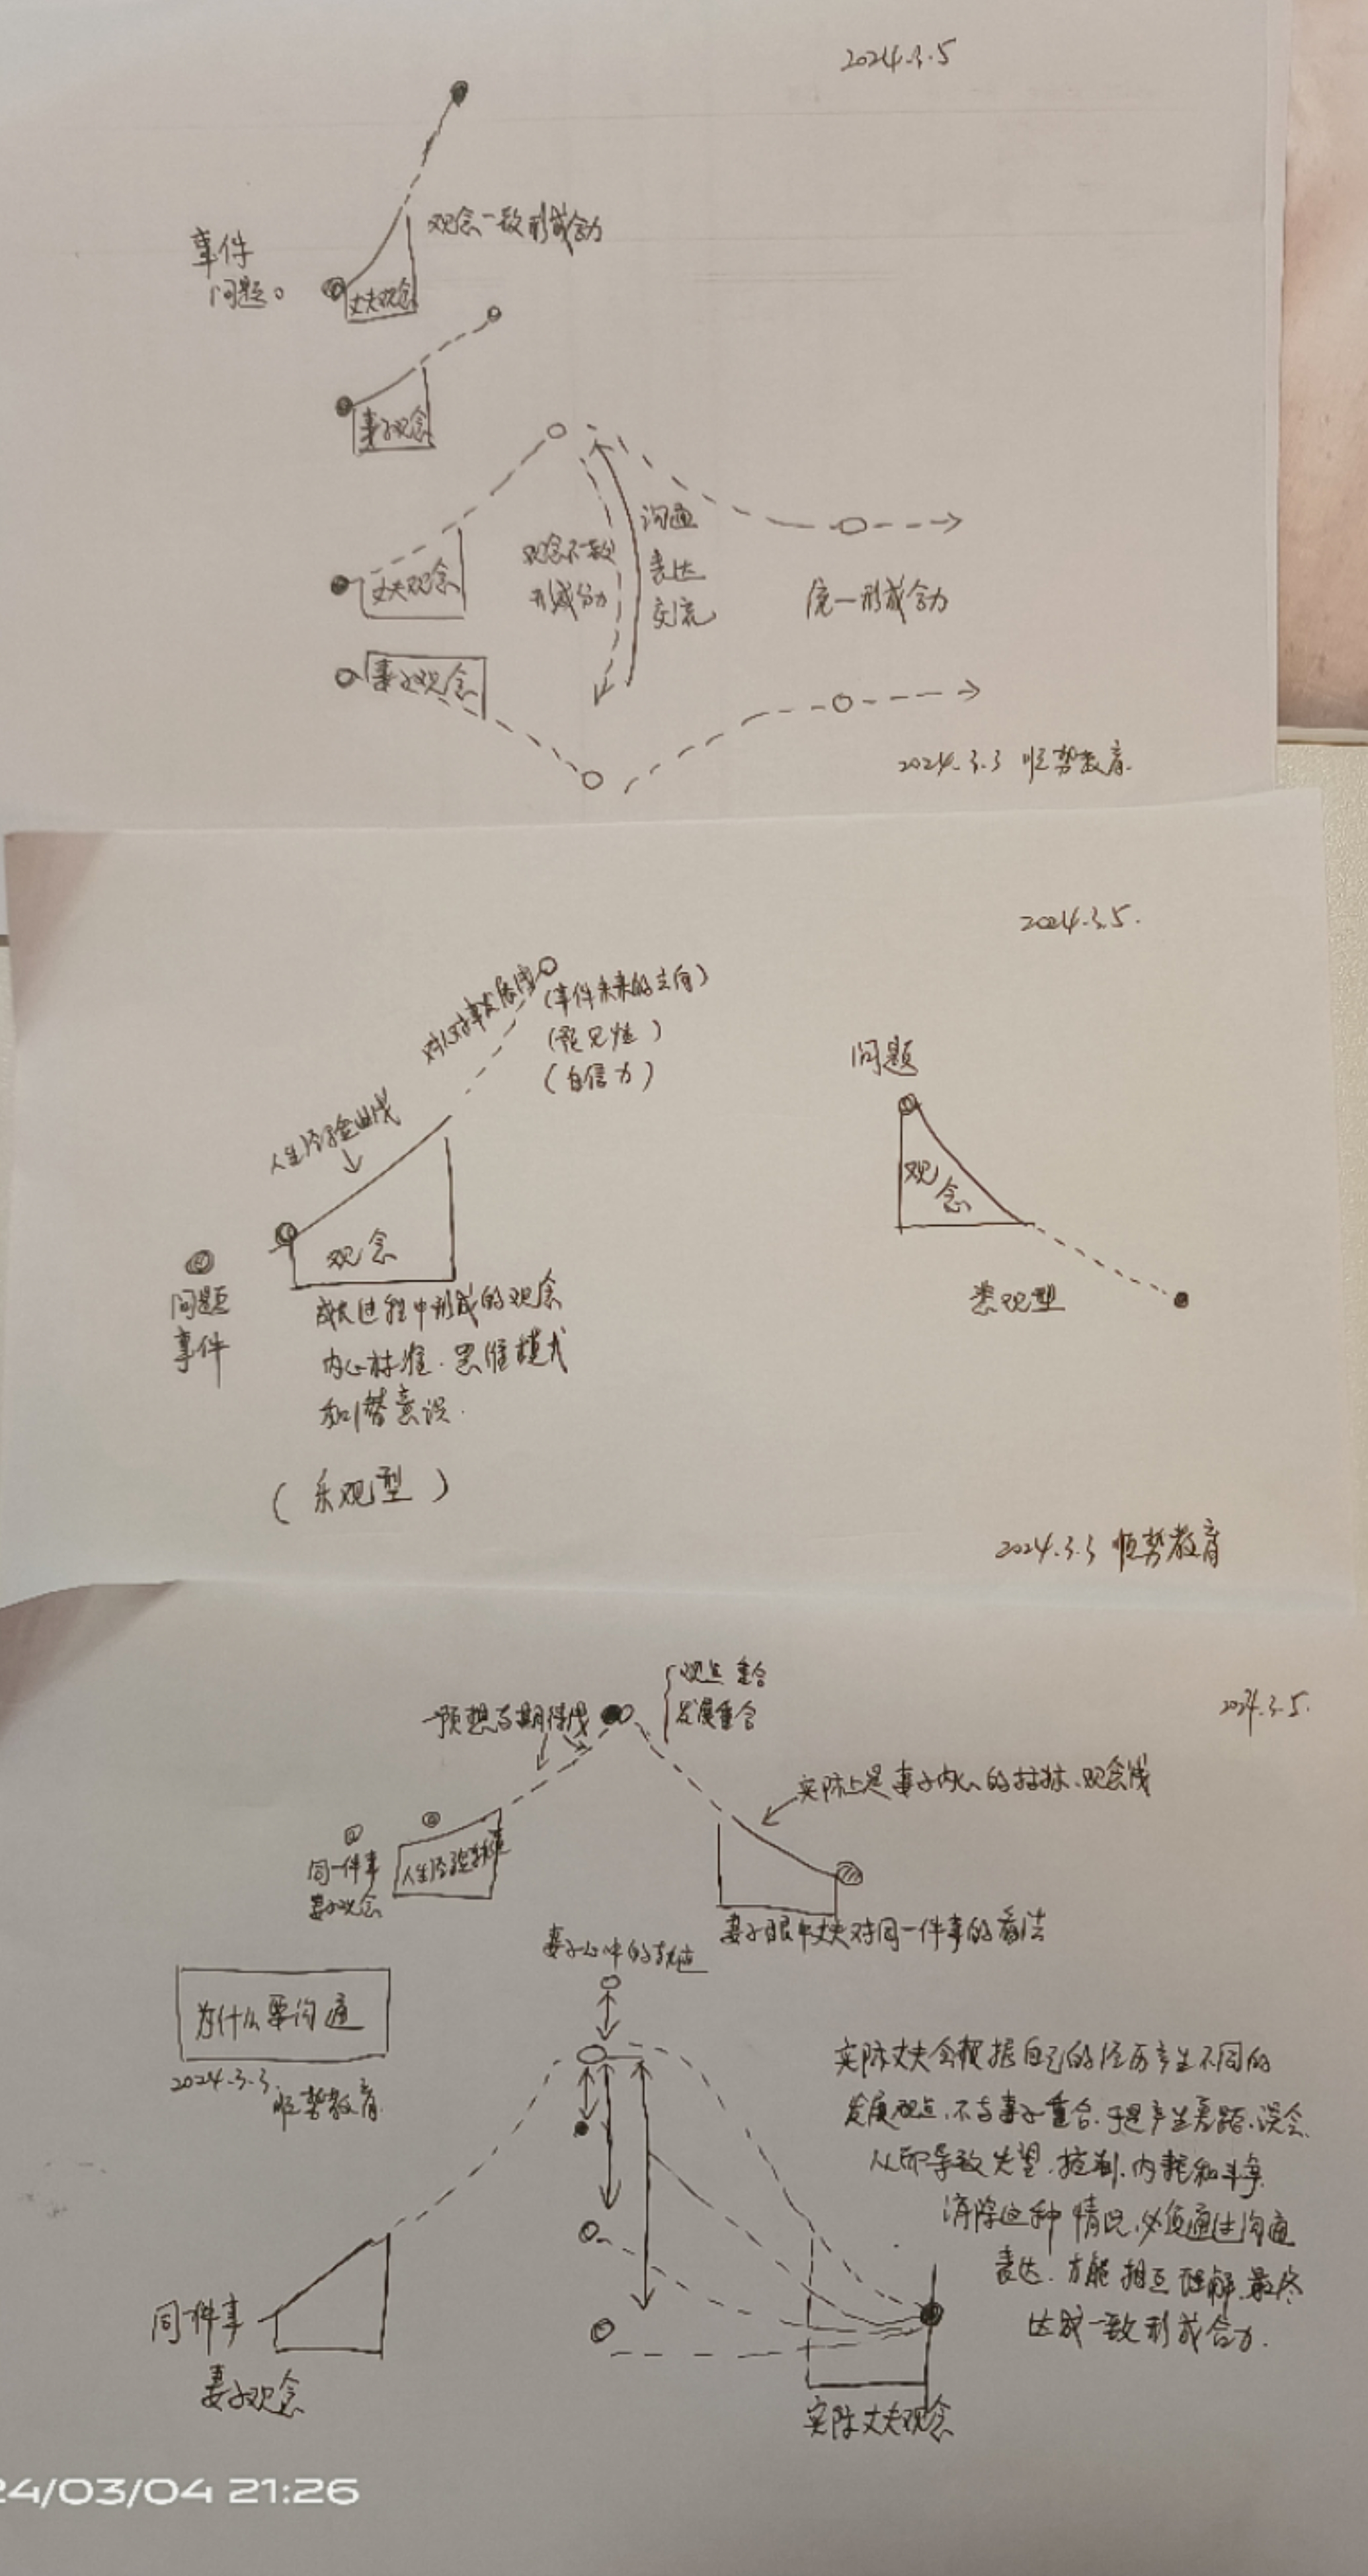 2024.3.5
事件
问题。
观念一致形成合力
丈夫观念
妻子观念
丈夫观念
观念不一致
形成分力
沟通
表达
交流
统一形成合力
妻子观念
2024.3.3 顺势教育
2024.3.5.
(事件未来的方向)
(预见性)
(自信力)
人生经验曲线
观念
问题
事件
成长过程中形成的观念
内心标准.思维模式
和潜意识.
(乐观型)
问题
观
念
悲观型
2024.3.3 顺势教育
2024.3.5.
预想与期待线
观点重合
发展重合
实际上是妻子内心的指标、观念线
同一件事
妻子观念
人生经验
妻子眼中丈夫对同一件事的看法
妻子心中的
为什么要沟通
2024.3.3
顺势教育
实际丈夫会根据自己的经历产生不同的
发展观点.不与妻子重合.于是产生差距.误会.
从而导致失望.控制.内耗和斗争.
消除这种情况.必须通过沟通
表达.方能相互理解.最终
达成一致形成合力.
同一件事
妻子观念
实际丈夫观念
24/03/04 21:26